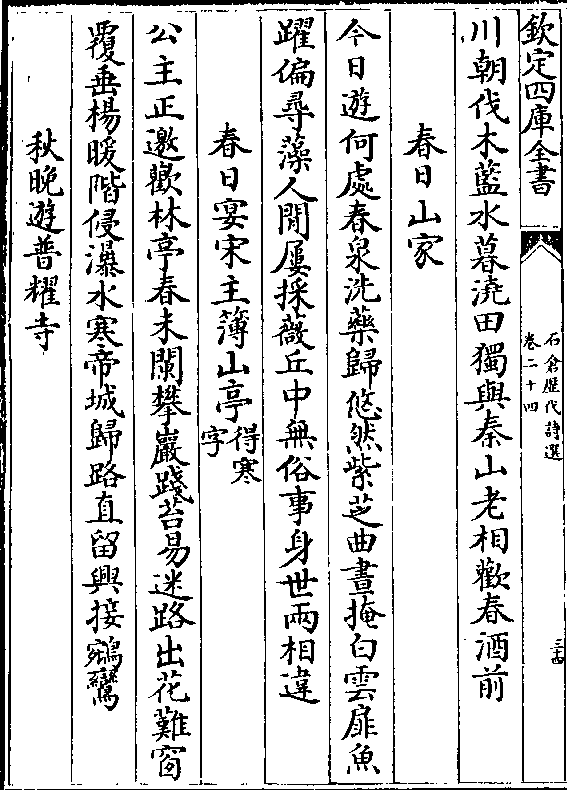 欽定四庫全書
石倉歴代詩選
卷二十四
三十四
川朝伐木藍水暮澆田獨與秦山老相歡春酒前
春日山家
今日遊何處春泉洗藥歸悠然紫芝曲晝掩白雲扉魚
躍偏尋藻人閒屢採薇丘中無俗事身世兩相違
春日宴宋主簿山亭得寒字
公主正邀歡林亭春未闌攀巖踐苔易迷路出花難窗
覆垂楊暖階侵瀑水寒帝城歸路直留興接鵷鸞
秋晚遊普耀寺